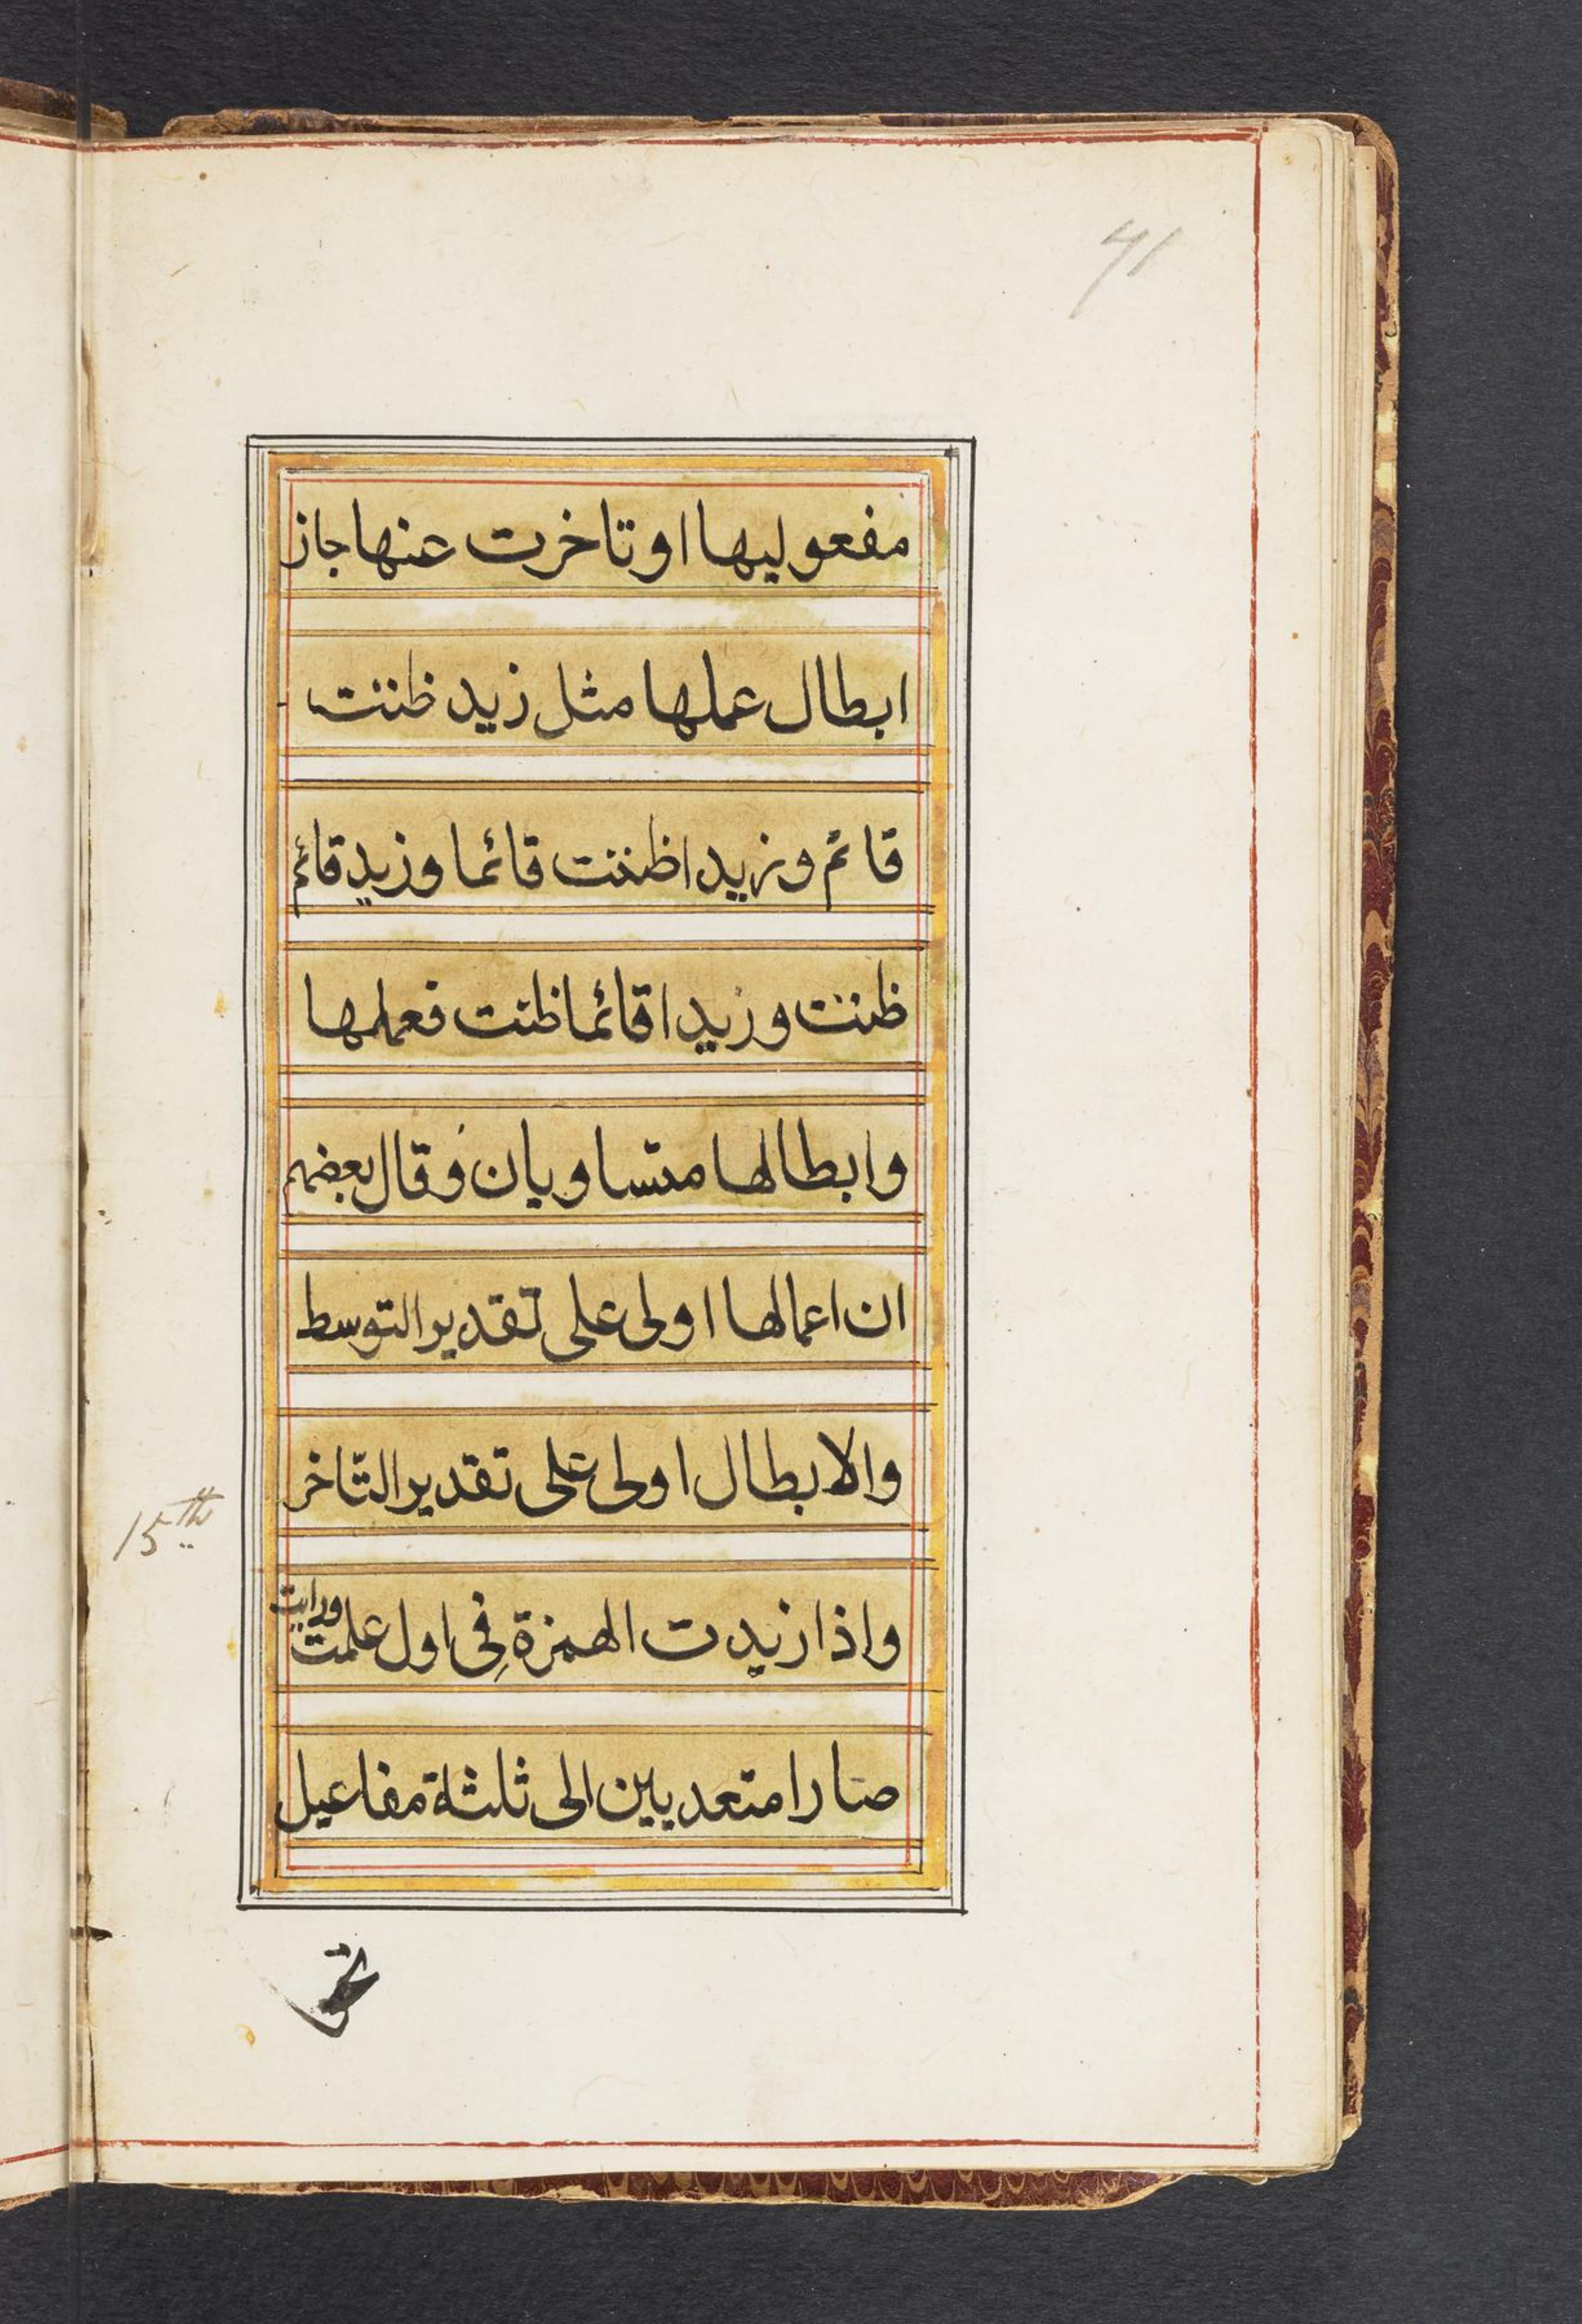 41
مفعوليها او تاخرت عنها جاز
ابطال عملها مثل زيد ظننت
قائم وزيدا ظننت قائما وزيد قائم
ظننت وزيدا قائما ظننت فعملها
وابطالها متساويان وقال بعضهم
ان اعمالها اولى على تقدير التوسط
والابطال اولى على تقدير التّاخر
15th
واذا زيدت الهمزة فِى اول علمت ورايت
صارا متعديين الى ثلثة مفاعيل
نحو